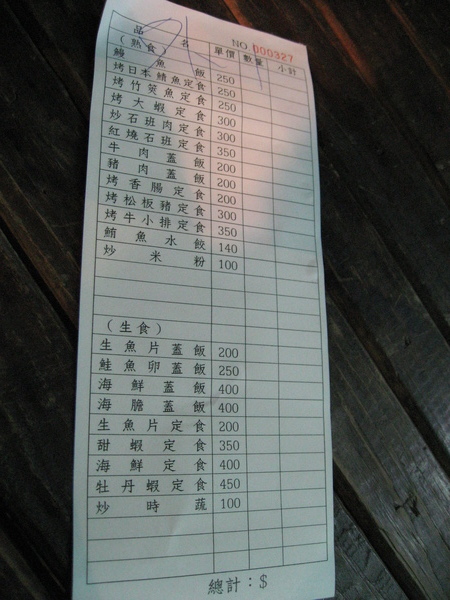 NO. 000327
品名 單價 數量 小計
(熟食)
鰻魚飯 250
烤日本鯖魚定食 250
烤竹筴魚定食 250
烤大蝦定食 300
炒石班肉定食 300
紅燒石班定食 350
牛肉蓋飯 200
豬肉蓋飯 200
烤香腸定食 200
烤松板豬定食 300
烤牛小排定食 350
鮪魚水餃 140
炒米粉 100
(生食)
生魚片蓋飯 200
鮭魚卵蓋飯 250
海鮮蓋飯 400
海膽蓋飯 400
生魚片定食 200
甜蝦定食 350
海鮮定食 400
牡丹蝦定食 450
炒時蔬 100
總計：$